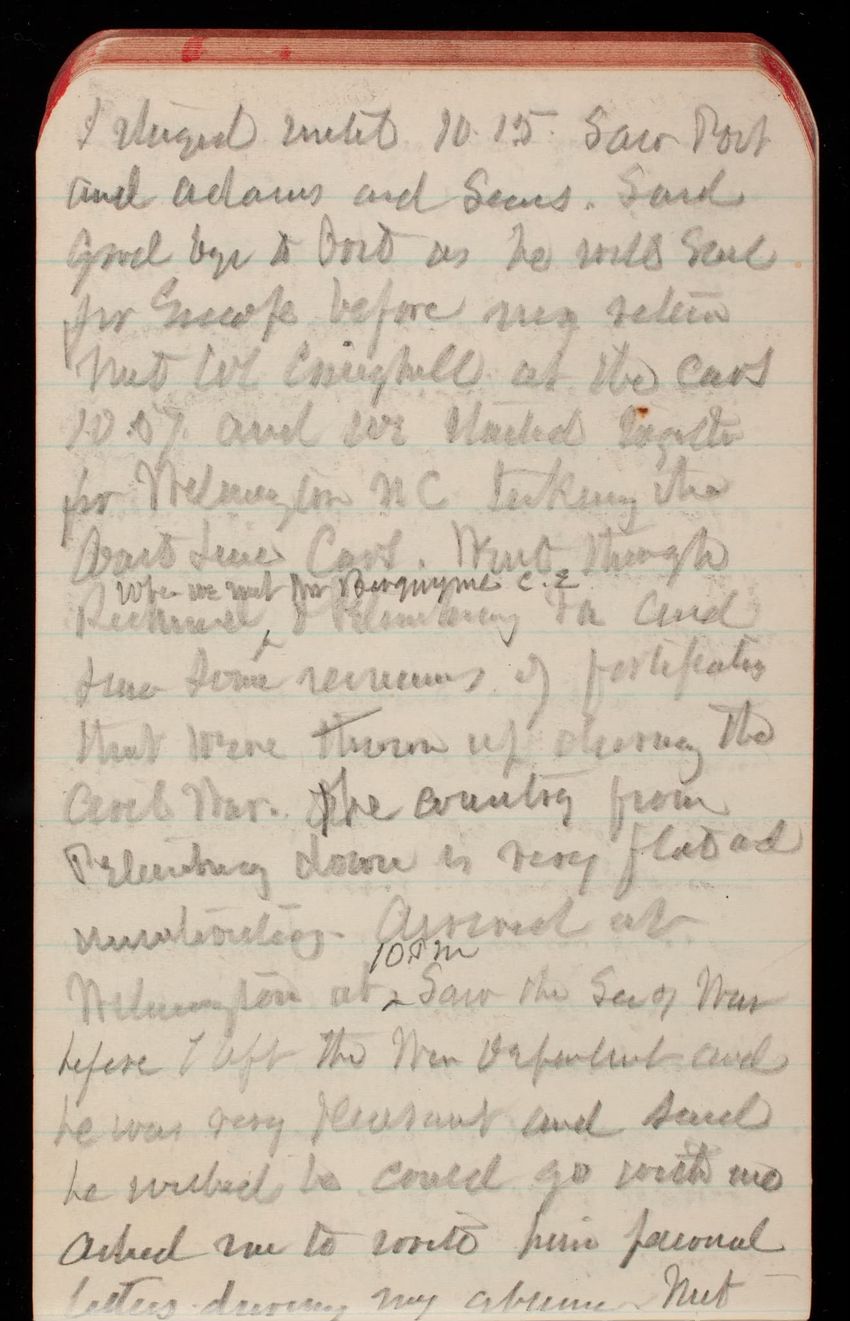 I stayed until 10.15. Saw Port
and Adams and Sears. Said
Good bye to Port as he will Sail
for Europe before my return
Met Col Craighill at the Cars
10.57 and we started together
for Wilmington N C taking the
Coast Line Cars. Went through
where we met Mr C. E
Richmond & Petersburg Va and
saw some remains of fortification
that were thrown up during the
Civil War. The country from
Petersburg down is very flat and
uninteresting. Arrived at
10 P m
Wilmington at Saw the Sec of War
before I left the War Department and
he was very pleasant and said
he wished he could go with me
asked me to write him personal
letters during my absence. Met